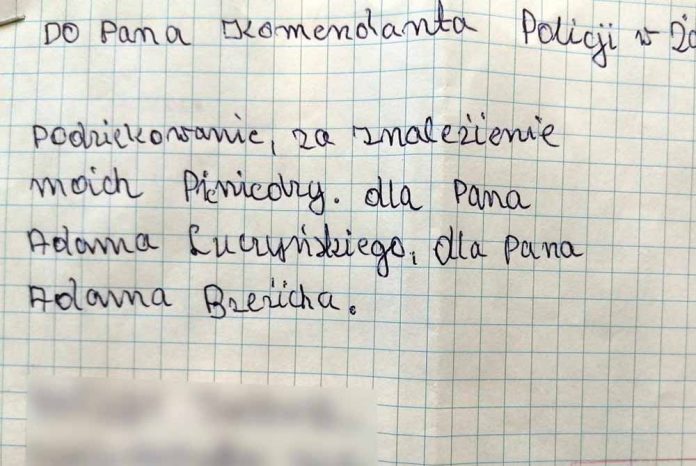 DO Pana Komendanta Policji w
Podziękowanie, za znaleźienie
moich Pienicdzy. dla Pana
Adama Łuczyńskiego, dla Pana
Adama Brzezicha.